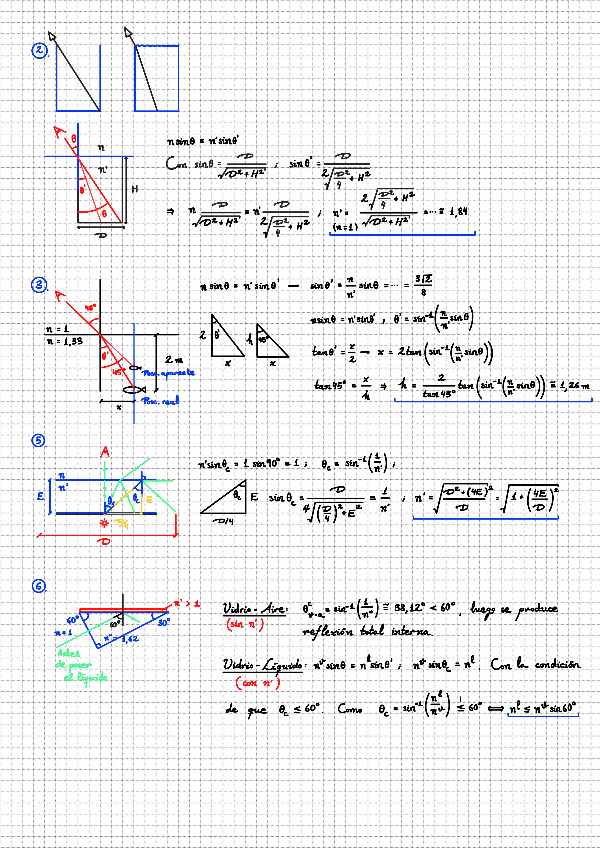 2
θ
n
n'
θ'
θ
H
D
n sinθ = n' sinθ'
Con sinθ = D/√(D² + H²) ; sinθ' = D/(2√(D²/4 + H²))
⇒ n D/√(D² + H²) = n' D/(2√(D²/4 + H²)) ; n' = (2√(D²/4 + H²))/√(D² + H²) = ... ≅ 1,84
(n=1)
3
45°
n = 1
n = 1,33
θ'
45°
2 m
Pos. aparente
Pos. real
x
n sinθ = n' sinθ' — sinθ' = n/n' sinθ = ... = 3√2/8
2 θ' x
h 45° x
n sinθ = n' sinθ' , θ' = sin⁻¹(n/n' sinθ)
tanθ' = x/2 → x = 2 tan(sin⁻¹(n/n' sinθ))
tan 45° = x/h ⇒ h = 2/tan 45° tan(sin⁻¹(n/n' sinθ)) ≅ 1,26 m
5
A
n
n'
E
D/4
D
n' sinθc = 1 sin 90° = 1 ; θc = sin⁻¹(1/n') ;
θc
E
D/4
sinθc = D/(4√((D/4)² + E²)) = 1/n' ; n' = √(D² + (4E)²)/D = √(1 + (4E/D)²)
6
n' > 1
60°
60°
30°
n = 1
n'' = 1,62
Antes
de poner
el líquido
Vidrio - Aire: θᶜv-a = sin⁻¹(1/nᵛ) ≅ 38,12° < 60°, luego se produce
(sin n')
reflexión total interna.
Vidrio - Líquido: nᵛ sinθ = nˡ sinθ' ; nᵛ sinθc = nˡ. Con la condición
(con n')
de que θc ≤ 60°. Como θc = sin⁻¹(nˡ/nᵛ) ≤ 60° ⟺ nˡ ≤ nᵛ sin 60°